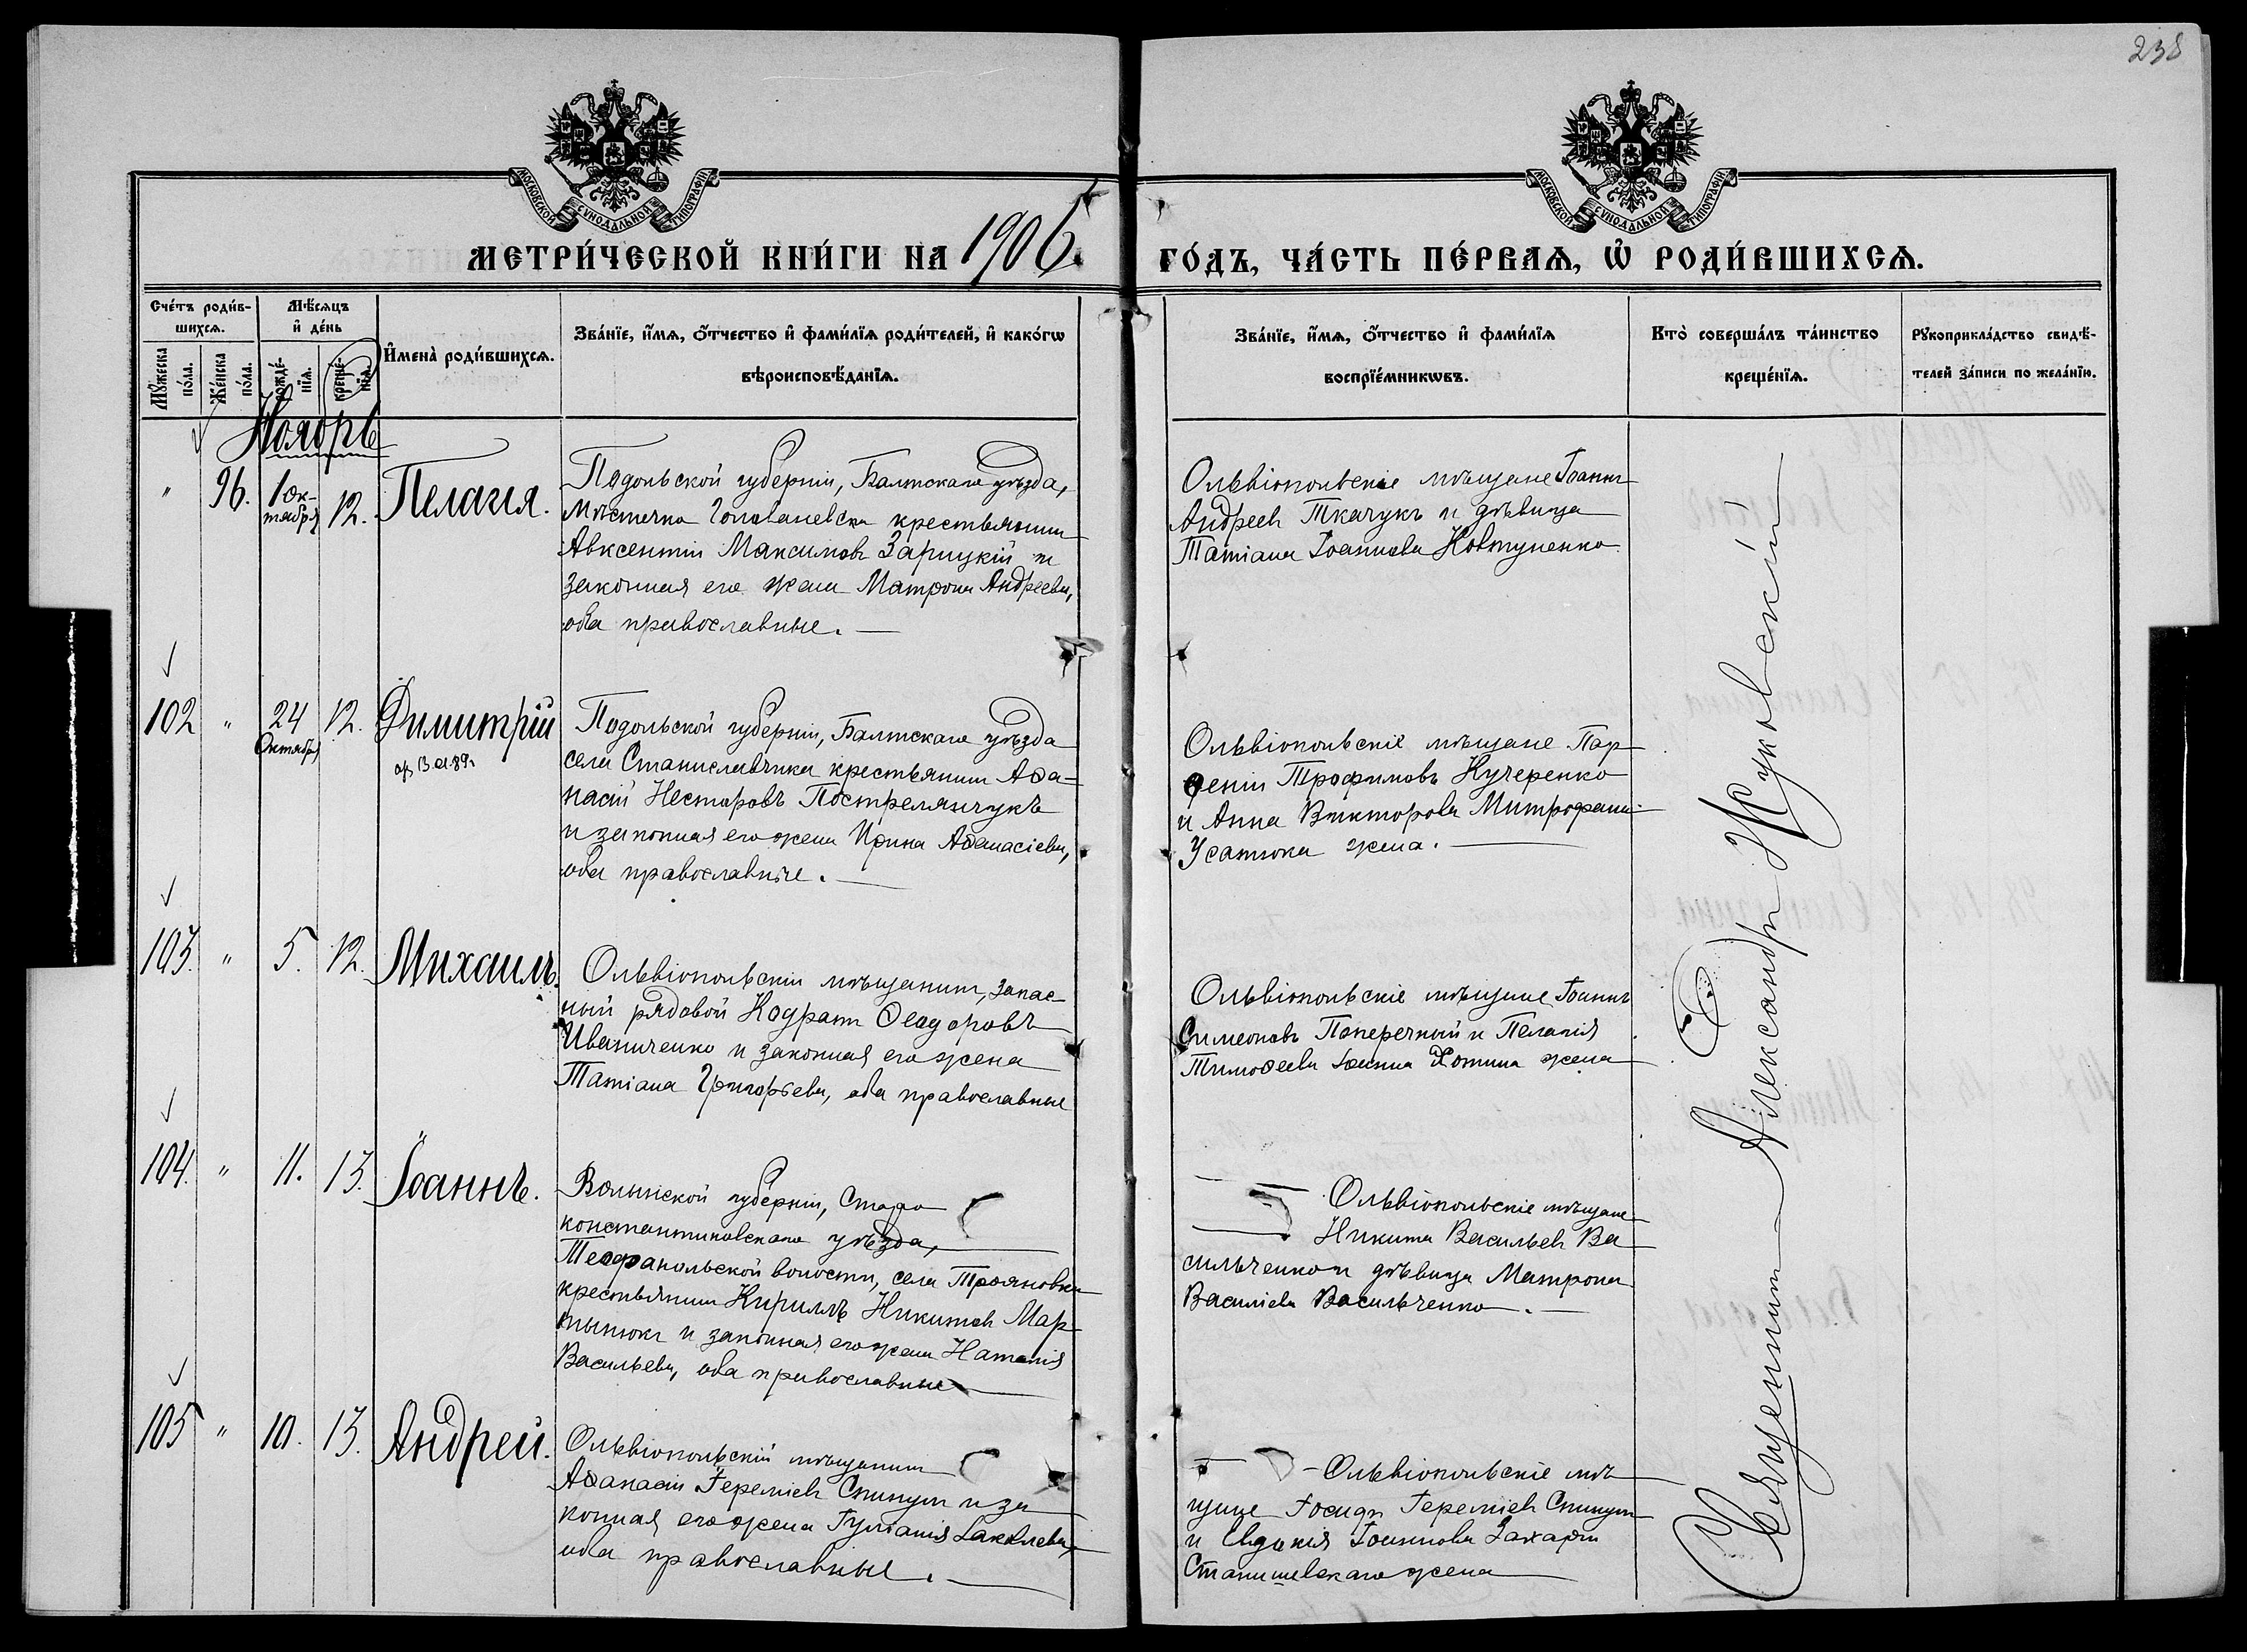 238
МОСКОВСКОЙ СУНОДАЛЬНОЙ ТИПОГРАФІИ
МОСКОВСКОЙ СУНОДАЛЬНОЙ ТИПОГРАФІИ
МЕТРИ́ЧЕСКОЙ КНИ́ГИ НА 1906.
ГО́ДЪ, ЧА́СТЬ ПЕ́РВАѦ, Ѽ РОДИ́ВШИХСѦ.
Сче́тъ роди́в-
шихсѧ.
Мꙋ́жеска по́ла.
Же́нска по́ла.
Мѣ́сѧцъ
и҆ де́нь
рожде́-
нїѧ.
креще́-
нїѧ.
И҆мена̀ роди́вшихсѧ.
Зва́нїе, и҆́мѧ, ѻ҆́тчество и҆ фами́лїѧ роди́телей, и҆ како́гѡ
вѣроисповѣ́данїѧ.
Зва́нїе, и҆́мѧ, ѻ҆́тчество и҆ фами́лїѧ
воспрїе́мникѡвъ.
Кто̀ соверша́лъ та́инство
креще́нїѧ.
Рꙋкоприкла́дство свидѣ́-
телей за́писи по жела́нїю.
Ноябрь
" 96. 1 Ок-
тября 12. Пелагія.
Подольской губерніи, Балтскаго уѣзда,
мѣстечка Голованевска крестьянинъ
Авксентій Максимовъ Зарицкій и
законная его жена Матрона Андреева,
оба православные.
Ольвіопольскіе мѣщане Іоаннъ
Андреевъ Ткачукъ и дѣвица
Татіана Іоаннова Ковтуненко.
102 " 24
Октября 12. Димитрій
Подольской губерніи, Балтскаго уѣзда
села Станиславчика крестьянинъ Аѳа-
насій Несторовъ Пострелянчукъ
и законная его жена Ирина Аѳанасіева,
оба православные.
Ольвіопольскіе мѣщане Пар-
ѳеній Трофимовъ Кучеренко
и Анна Викторова Митрофана
Усатюка жена.
103. " 5. 12. Михаилъ.
Ольвіопольскій мѣщанинъ, запас-
ный рядовой Кодратъ Ѳеодоровъ
Иваниченко и законная его жена
Татіана Григорьева, оба православные
Ольвіопольскіе мѣщане Іоаннъ
Симеоновъ Поперечный и Пелагія
Тимоѳеева жена
104. " 11. 13. Іоаннъ.
Волынской губерніи, Старо
константиновскаго уѣзда,
Теофипольской волости, села Трояновки
крестьянинъ Кириллъ Никитовъ Мар-
тынюкъ и законная его жена Наталія
Васильева, оба православные
Ольвіопольскіе мѣщане
Никита Васильевъ Ва-
сильченко и дѣвица Матрона
Василіева Васильченко.
105 " 10. 13. Андрей.
Ольвіопольскій мѣщанинъ
Аѳанасій Іереміевъ и за
конная его жена Іуліанія Іаковлева,
оба православные.
Ольвіопольскіе мѣ
щане Іосифъ Іереміевъ
и Евдокія Іоаннова Захарія
Станишевскаго жена
Священникъ Александръ Жуковскій